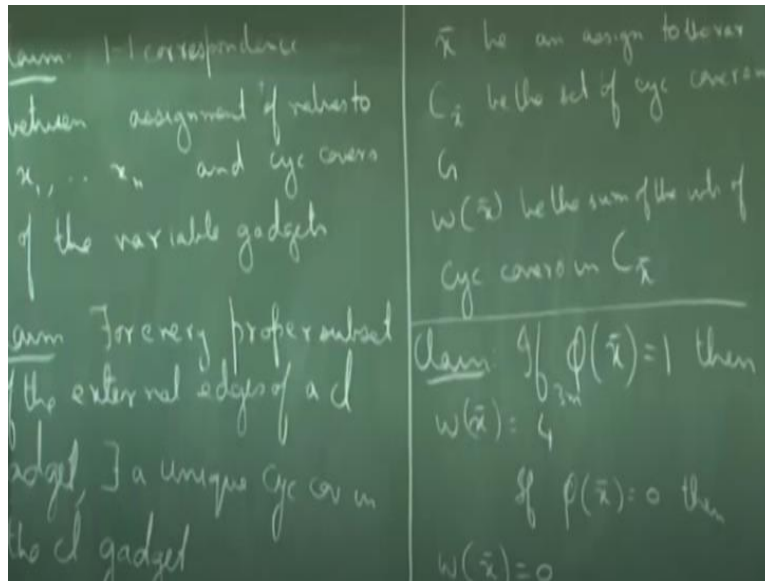 laim: 1-1 correspondence
between assignment of values to
x₁, .. xₙ and cyc covers
of the variable gadgets
aim For every proper subset
f the external edges of a cl
adget, ∃ a unique cyc cov in
the cl gadget
x̄ be an assign to the var
C_x̄ be the set of cyc covers in
G
w(x̄) be the sum of the wts of
cyc covers in C_x̄
Claim: If φ(x̄)=1 then
w(x̄) = 4^{3m}
If φ(x̄)=0 then
w(x̄)=0